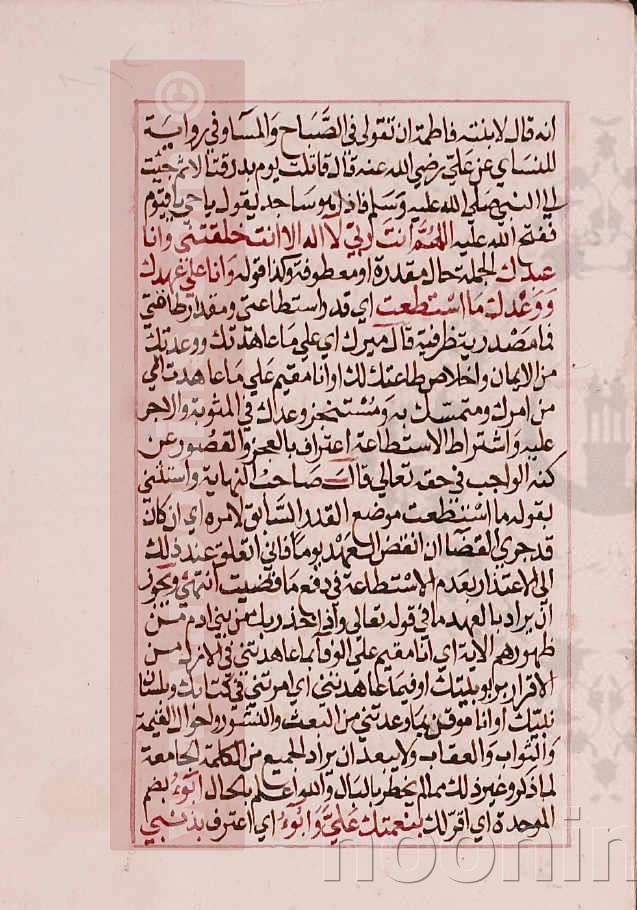 انه قال لابنته فاطمة ان تقولي في الصباح والمساء وفي رواية
للنساي عن علي رضي الله عنه قال قاتلت يوم بدر قتالا ثم جئت
الى النبي صلى الله عليه وسلم فاذا هو ساجد يقول يا حي يا قيوم
ففتح الله عليه اللهم انت ربي لا اله الا انت خلقتني وانا
عبدك الجملة حال مقدرة او معطوفة وكذا قوله وانا على عهدك
ووعدك ما استطعت اي قدر استطاعتي ومقدار طاقتي
فما مصدرية ظرفية قال ميرك اي على ما عاهدتك ووعدتك
من الايمان واخلاص طاعتك لك او انا مقيم على ما عاهدت الي
من امرك ومتمسك به ومستنجز وعدك في المثوبة والاجر
عليه واشتراط الاستطاعة اعتراف بالعجز والقصور عن
كنه الواجب في حقه تعالى قال صاحب النهاية واستثنى
بقوله ما استطعت موضع القدر السابق لامره اي ان كان
قد جرى القضا ان انقض العهد يوما فاني اتعلق عند ذلك
الى الاعتذار بعدم الاستطاعة في دفع ما قضيت انتهى ويجوز
ان يراد بالعهد ما في قوله تعالى واذ اخذ ربك من بني ادم من
ظهورهم الاية اي انا مقيم على الوفا بما عاهدتني في الازل من
الاقرار بربوبيتك او فيما عاهدتني اي امرتني في كتابك وبلسان
نبيك او انا موقن بما وعدتني من البعث والنشور واحوال القيمة
والثواب والعقاب ولا يبعد ان يراد الجميع من الكلمة الجامعة
لما ذكر وغير ذلك مما لم يخطر بالبال والله اعلم بالحال ابوء بضم
الموحدة اي اقر لك بنعمتك علي وابوء اي اعترف بذنبي
noonin